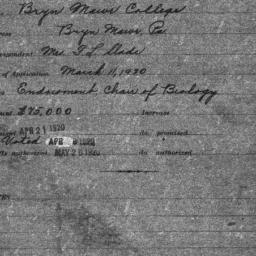 Bryn Mawr College
ess Bryn Mawr Pa
espondent Mrs F L Slade
of Application March 11, 1920
Endowment Chair of Biology
ount $75,000 Increase
APR 21 1920 do promised
Voted APR 1920
authorized MAY 26 1920 do authorized